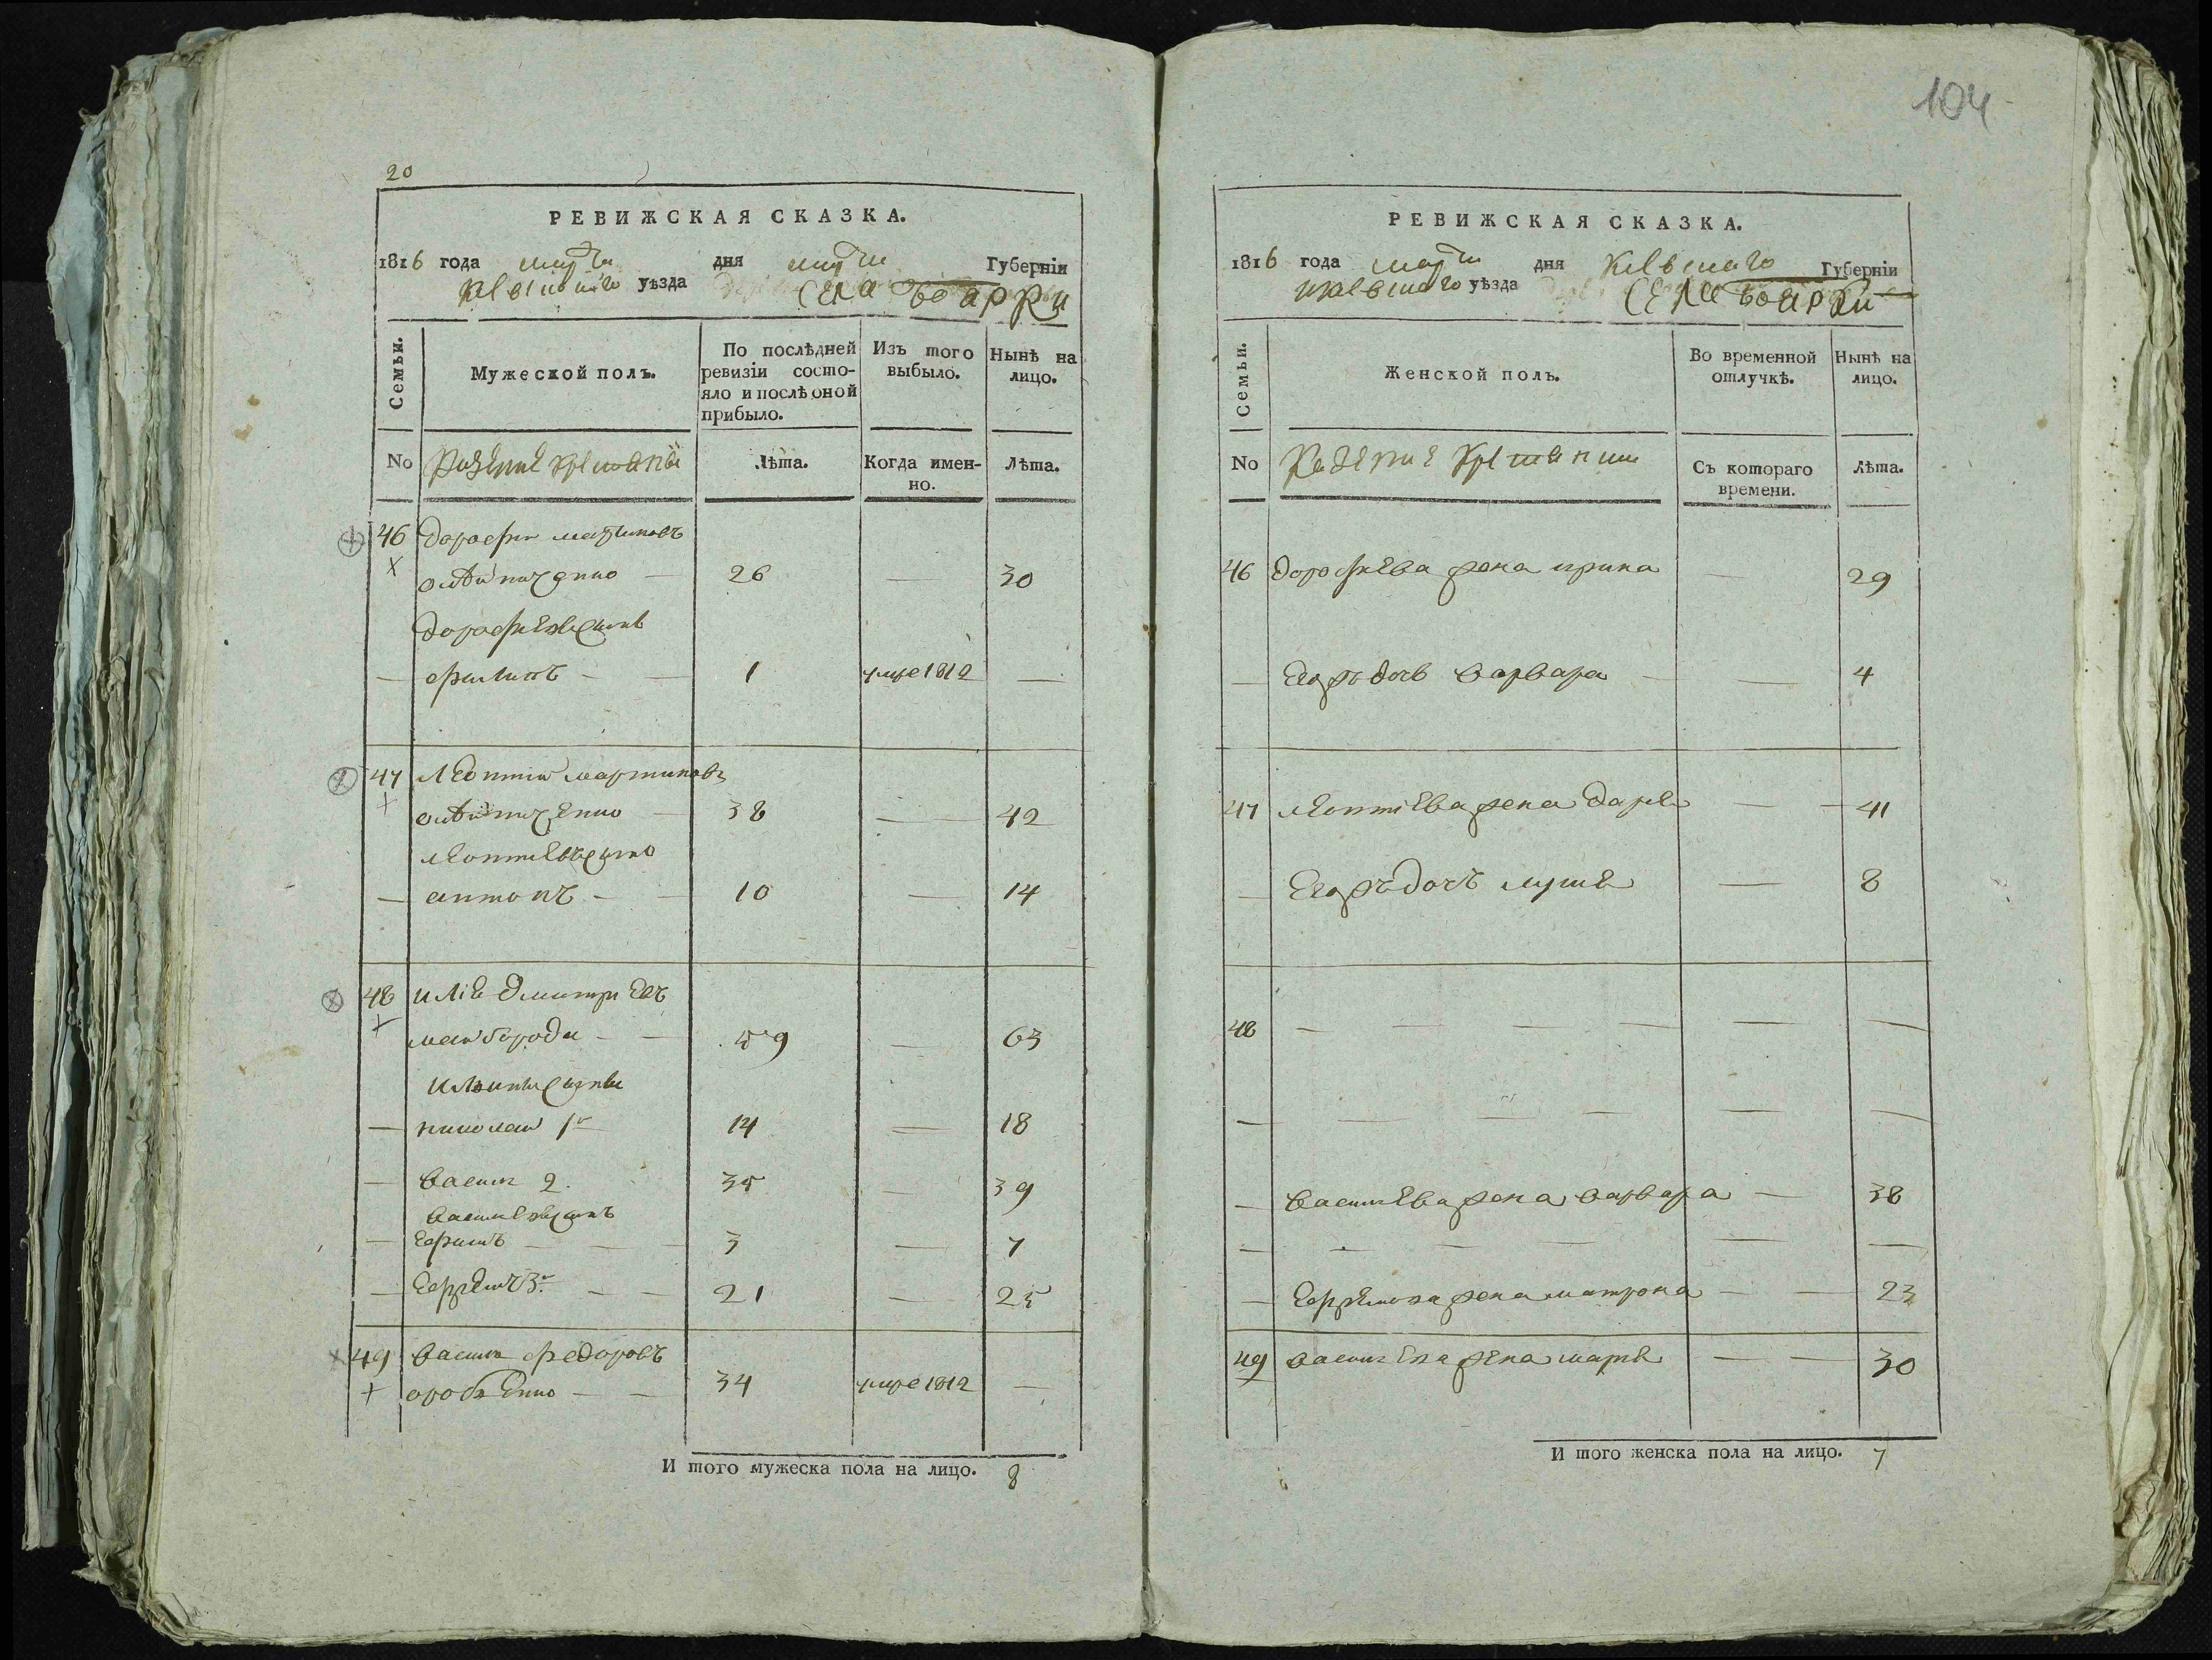 20
РЕВИЖСКАЯ СКАЗКА.
1816 года марта дня Губерніи
уѣзда села Боярки
Семьи.
Мужеской полъ.
По послѣдней ревизіи состо-
яло и послѣ оной
прибыло.
Изъ того
выбыло.
Нынѣ на
лицо.
No
Лѣта.
Когда имен-
но.
Лѣта.
46 дорофи мартиновъ
26 — 30
дорофиевъ сынъ
— филипъ — 1 умре 1812 —
47 леонтий мартиновъ
38 — 42
леонтиевъ сынъ
— антонъ — 10 — 14
48 илія дмитриевъ
майборода — 59 — 63
илиины сыны
— николай 1й 14 — 18
— васили 2. 35 — 39
васильевъ сынъ
— ефимъ — 3 — 7
— ефремъ 3й — 21 — 25
49 васили федоровъ
34 умре 1812 —
И того мужеска пола на лицо. 8
104
РЕВИЖСКАЯ СКАЗКА.
1816 года марта дня Киевскаго Губерніи
уѣзда села Боярки
Семьи.
Женской полъ.
Во временной
отлучкѣ.
Нынѣ на
лицо.
No
Съ котораго
времени.
Лѣта.
46 дорофиева жена ирина — 29
— Егожъ дочь варвара — 4
47 леонтиева жена дарья — 41
— Егожъ дочь — 8
48 — — — — — —
— — — — — — —
— василиева жена варвара — 38
— — — — — —
— Ефремова жена матрона — 23
49 василиева жена мария — 30
И того женска пола на лицо. 7